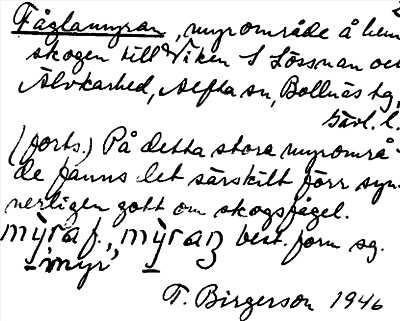 Fåglamyran, myrområde å hem
skogen till Viken S Lössnan och
Älvkarhed, Alfta sn, Bollnäs tg,
Gävl. l.
(forts.) På detta stora myrområ-
de fanns det särskilt förr syn-
nerligen gott om skogsfågel.
mỳra f., mỳraŋ best. form sg.
'myr'
T. Birgerson 1946